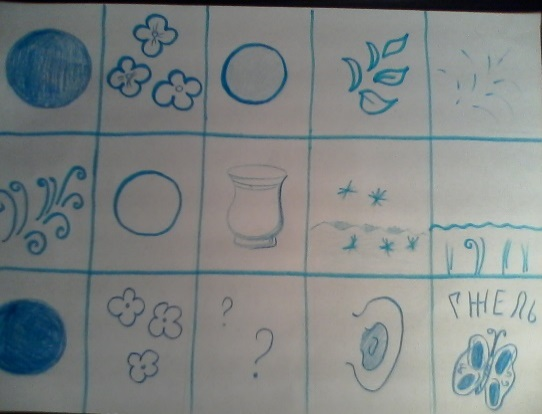 ? ?
ГЖЕЛЬ